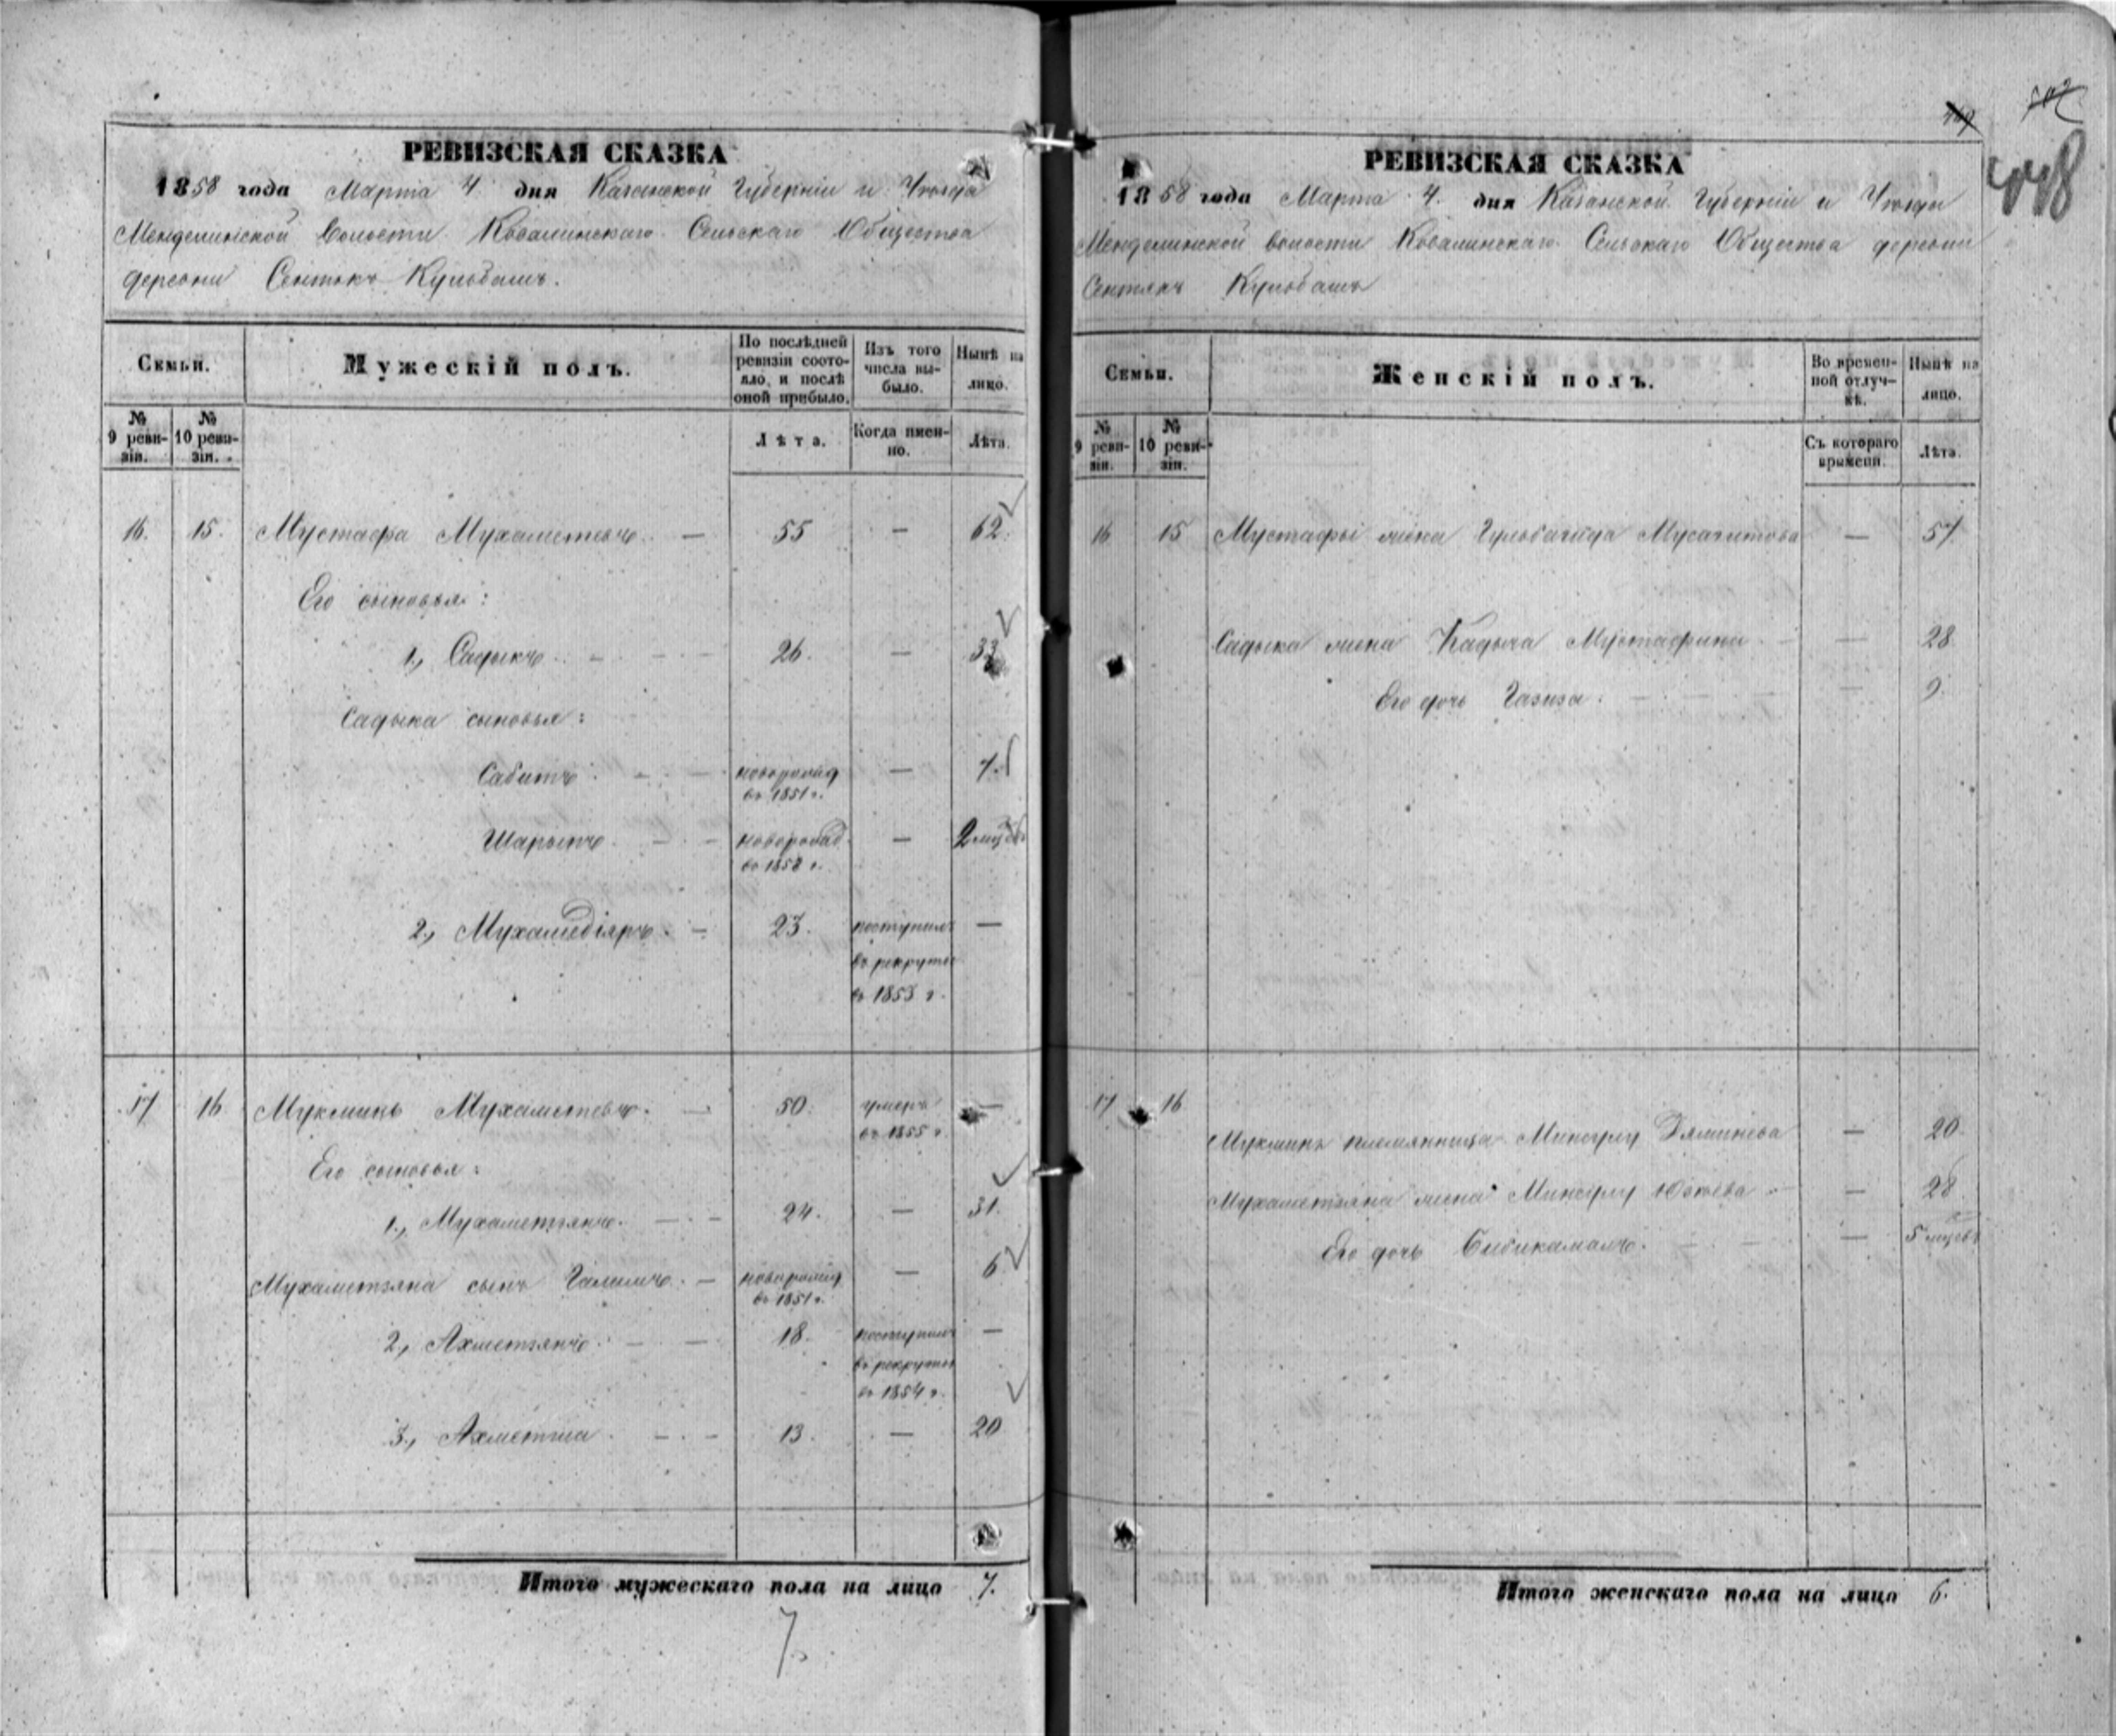 РЕВИЗСКАЯ СКАЗКА
1858 года Марта 4 дня Казанской Губерніи и Уѣзда
Менделинской Волости Ковалинскаго Сельскаго Общества
деревни Сентякъ Кульбашъ.
Семьи.
Мужескій полъ.
По послѣдней ревизіи состояло, и послѣ оной прибыло.
Изъ того числа выбыло.
Нынѣ на лицо.
№ 9 ревизіи.
№ 10 ревизіи.
Лѣта.
Когда именно.
Лѣта.
16. 15. Мустафа Мухаметевъ. — 55 — 62.
Его сыновья:
1, Садыкъ. — 26. — 33
Садыка сыновья:
Сабитъ. — новорожд — 7.
въ 1851 г.
Шарыпъ. — новорожд. — 2 мѣц
въ 1858 г.
2, Мухамедіяръ. — 23. поступилъ —
въ рекруты
въ 1853 г.
17 16 Мукминъ Мухаметевъ. — 50. умеръ —
въ 1855 г.
Его сыновья:
1, Мухаметзянъ. — 24. — 31.
Мухаметзяна сынъ Галимъ. — новорожд — 6
въ 1851 г.
2, Ахметзянъ. — 18. поступилъ —
въ рекруты
въ 1854 г.
3, Ахметша. — 13. — 20
Итого мужескаго пола на лицо 7.
7.
448
РЕВИЗСКАЯ СКАЗКА
1858 года Марта 4. дня Казанской Губерніи и Уѣзда
Менделинской волости Ковалинскаго Сельскаго Общества деревни
Сентякъ Кульбашъ
Семьи.
Женскій полъ.
Во временной отлучкѣ.
Нынѣ на лицо.
№ 9 ревизіи.
№ 10 ревизіи.
Съ котораго времени.
Лѣта.
16 15 Мустафы жена Мусагитова — 57.
Садыка жена Мустафина — 28
Его дочь Газиза. — 9.
17 16
племянница — 20.
Мухаметзяна жена — 28
Его дочь Бибикамалъ. — 5 мѣцовъ
Итого женскаго пола на лицо 6.